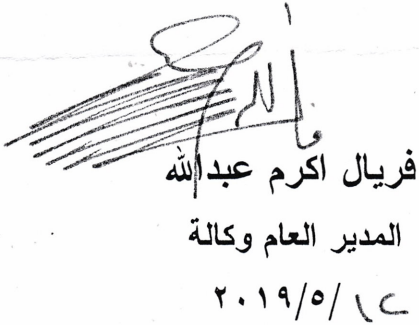 فريال اكرم عبدالله
المدير العام وكالة
٢٠١٩/٥/١٢